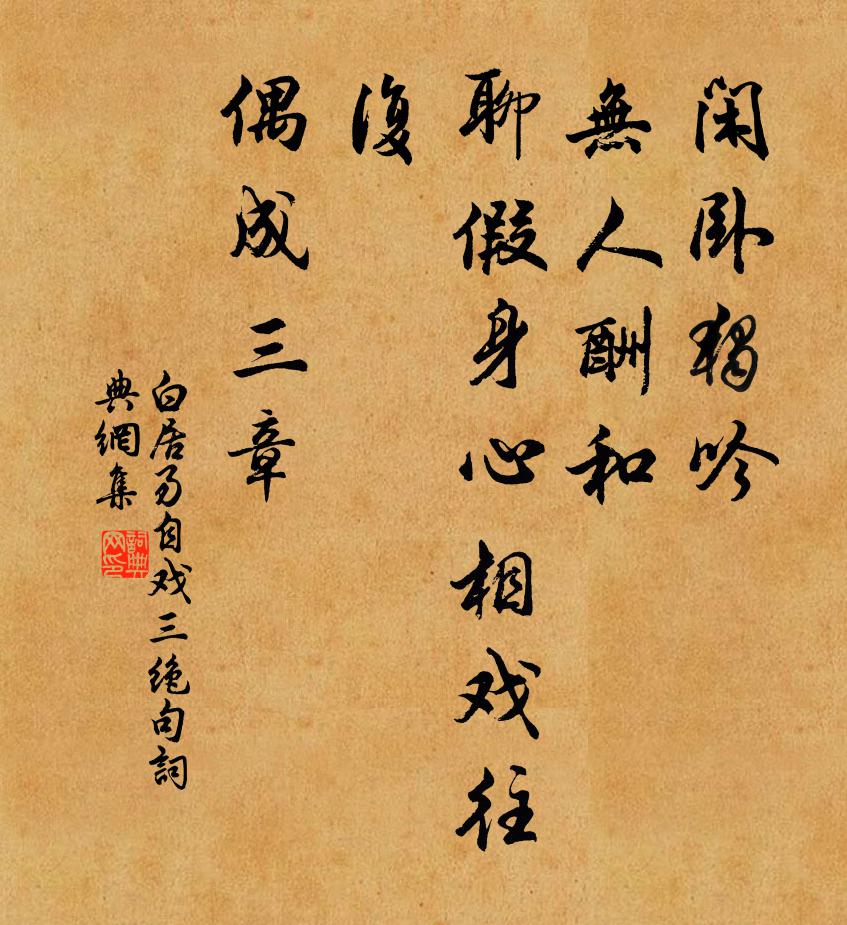 閑卧獨吟
無人酬和
聊假身心相戏往
復
偶成三章
白居易自戏三绝句詞
典網集
詞典
网印